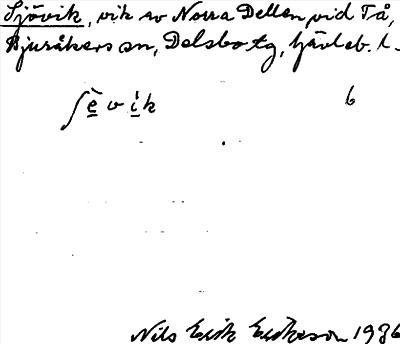 Sjövik, vik av Norra Dellen vid Tå,
Bjuråkers sn, Delsbo tg, Gävleb. l.
ʃè̱ v i̱̇ k 6
Nils Erik Eriksson 1936